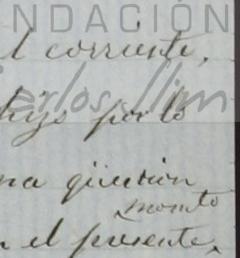 FUNDACIÓN
l corriente,
Carlos Slim
hijo por lo
na qüestion
momto
n el presente,